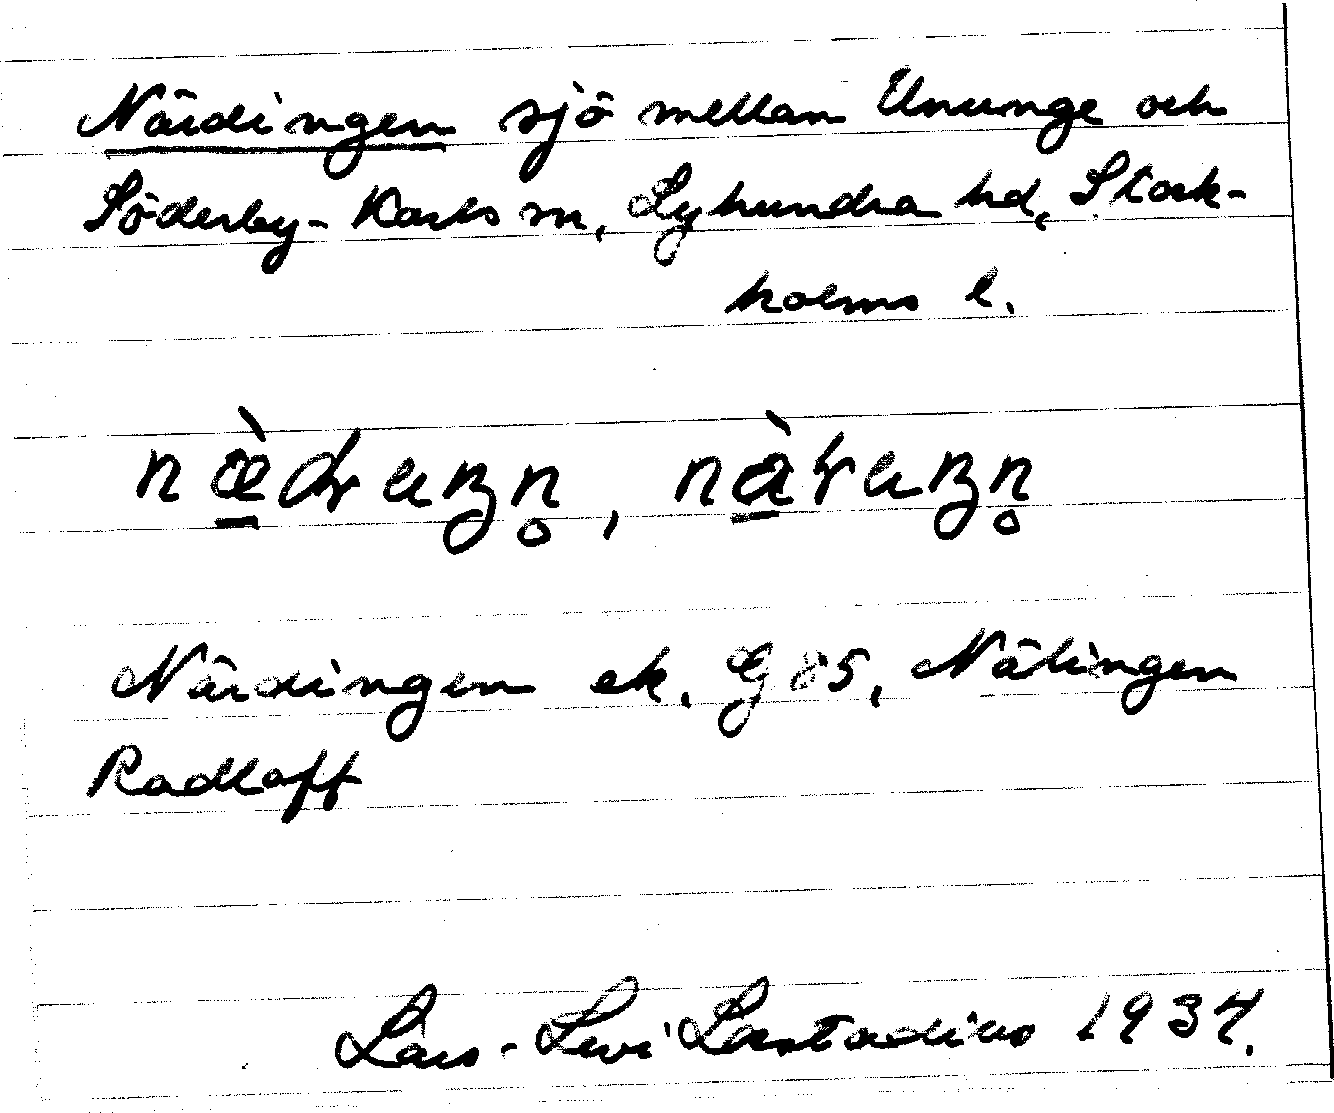 Närdingen sjö mellan Ununge och
Söderby-Karls sn, Lyhundra hd, Stock-
holms l.
Närdingen ek. G 85, Nätingen
Radloff
Lars-Levi Læstadius 1934.